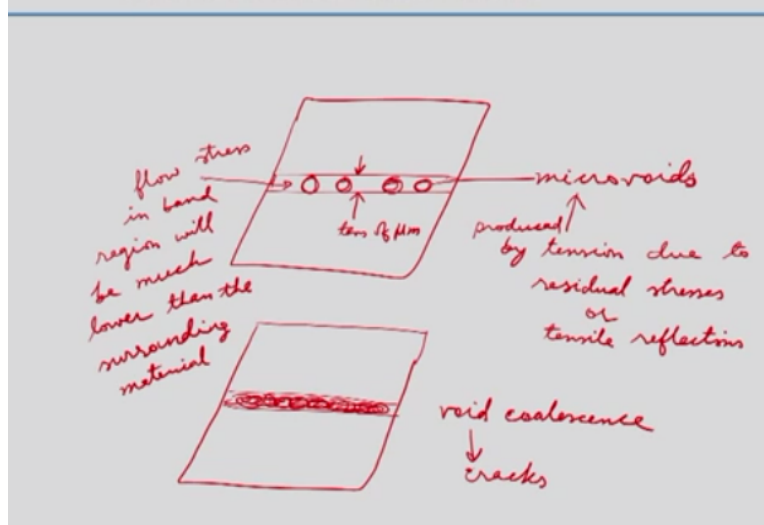 flow stress
in band
region will
be much
lower than the
surrounding
material
tens of μm
microvoids
produced
by tension due to
residual stresses
or
tensile reflections
void coalescence
cracks